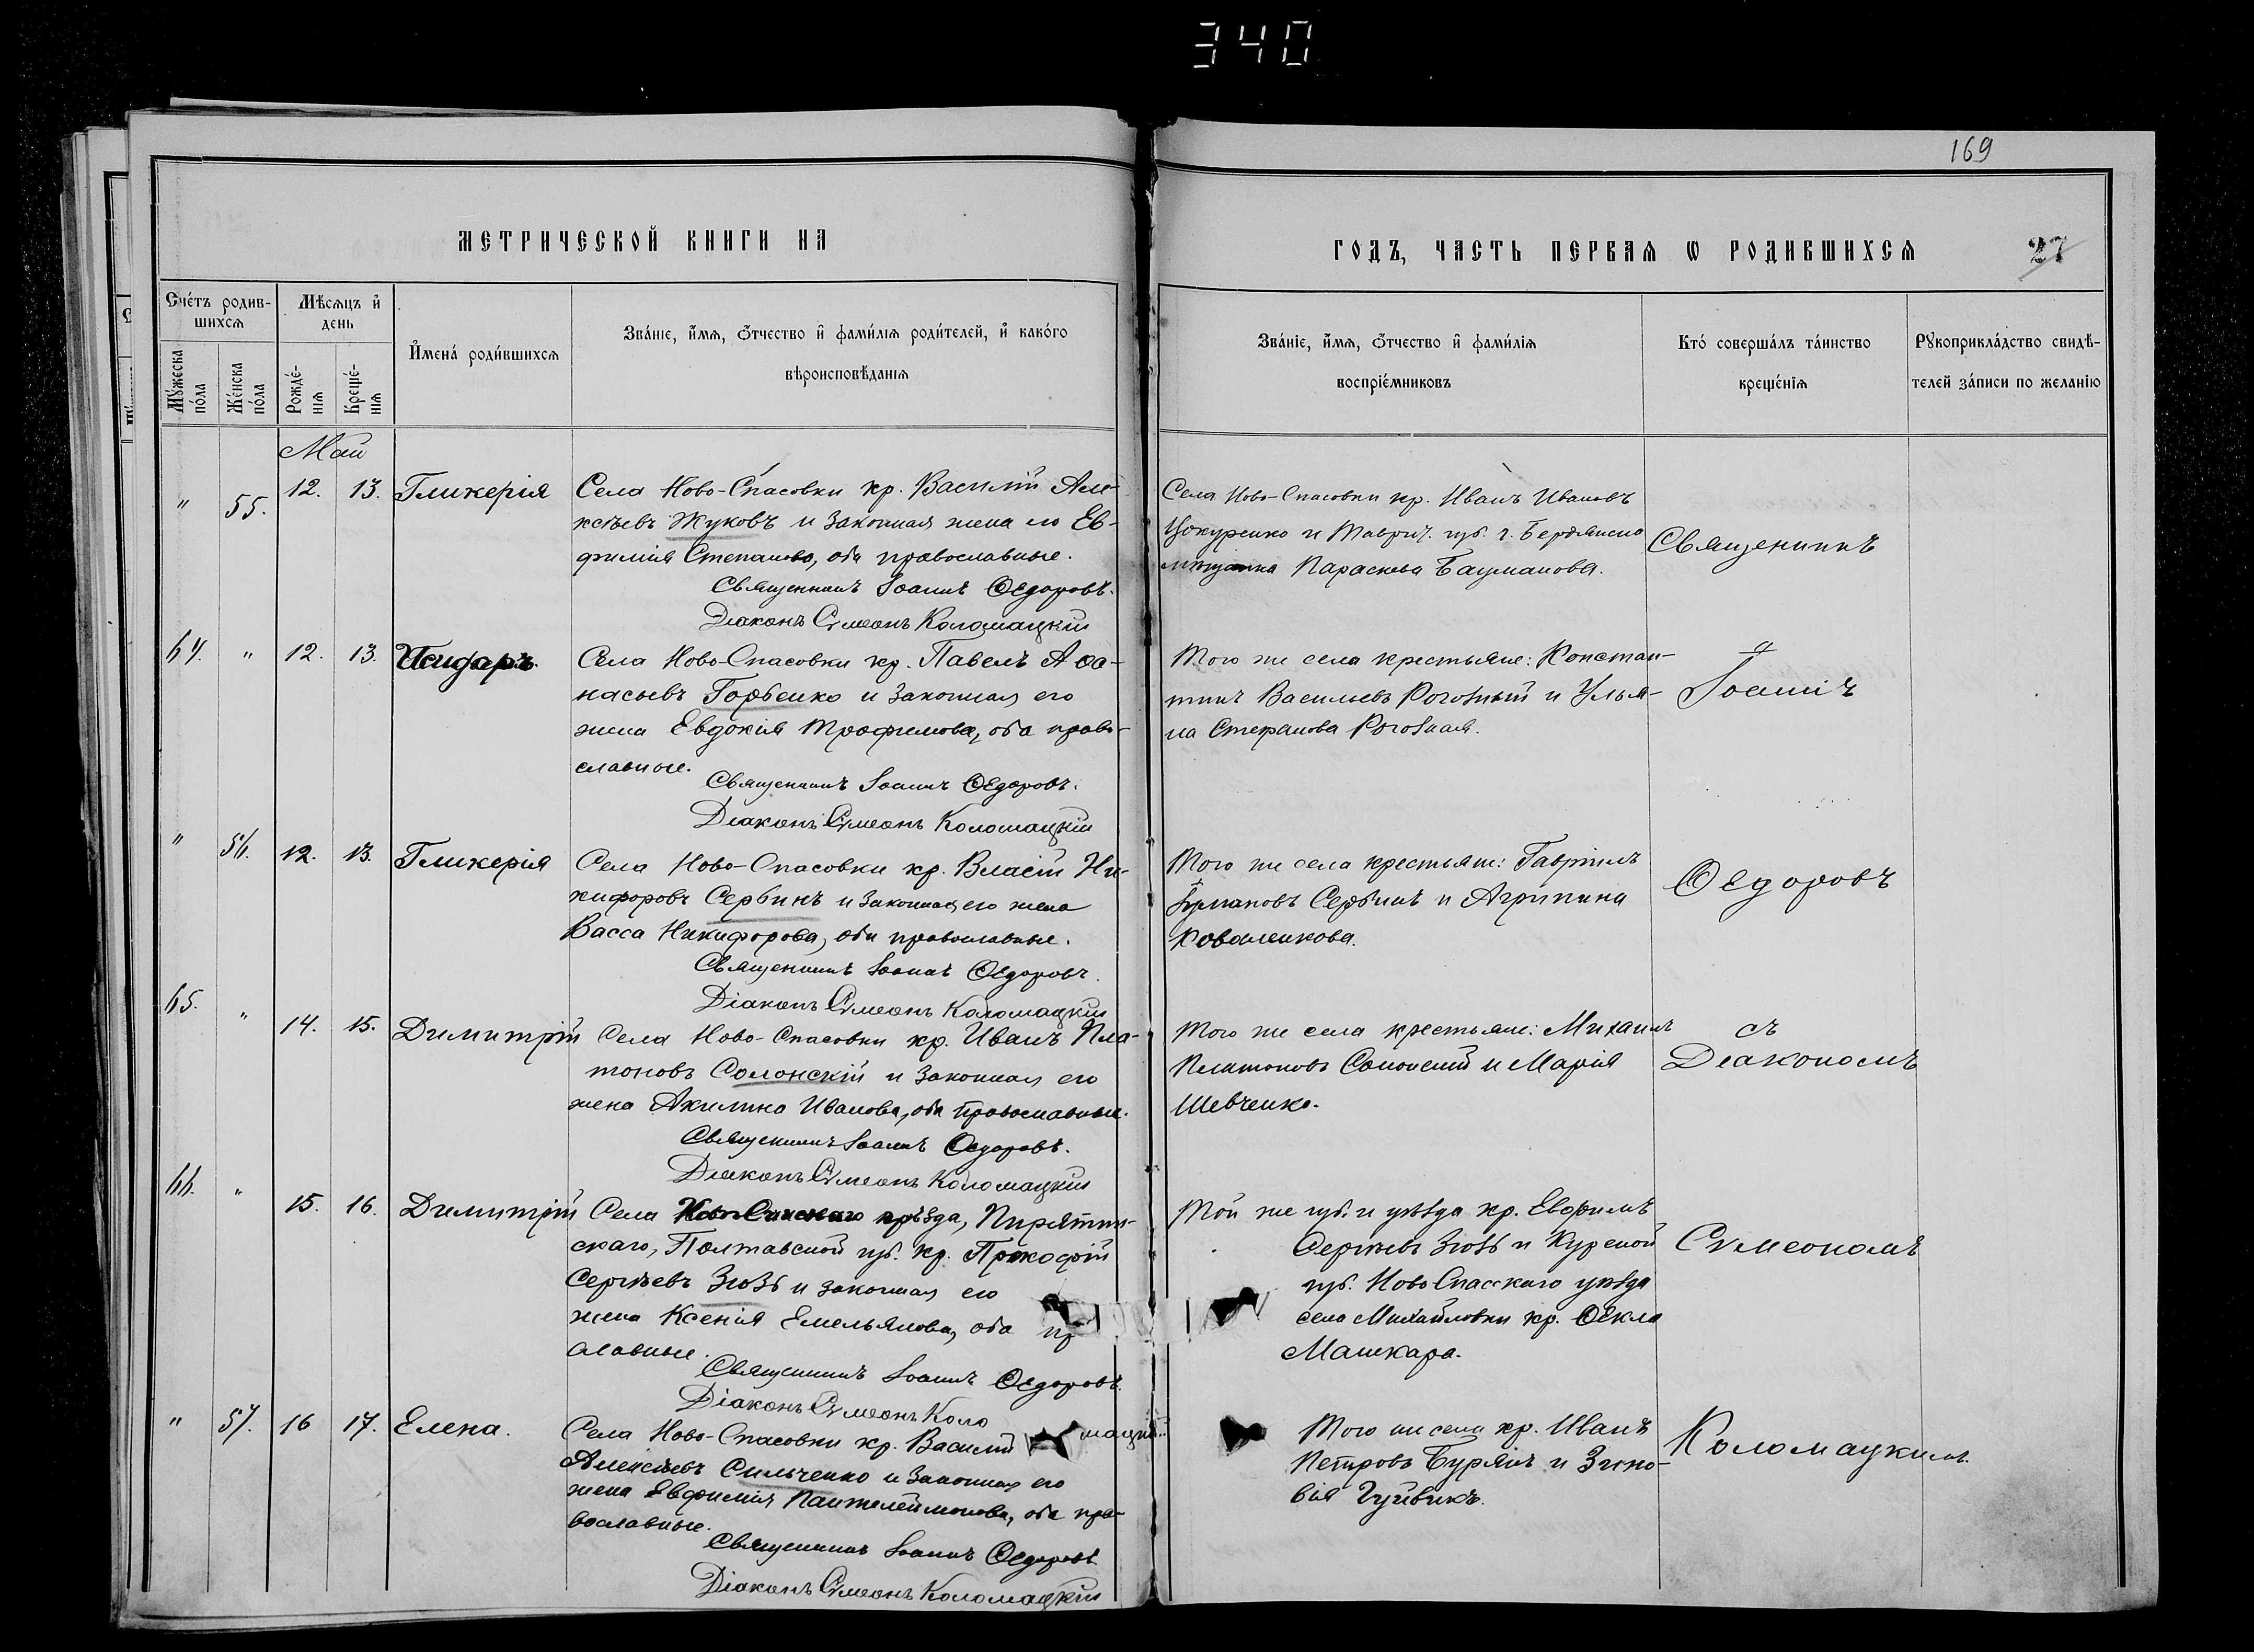 340
169
МЕТРИЧЕСКОЙ КНИГИ НА
ГОДЪ, ЧАСТЬ ПЕРВАѦ Ѡ РОДИВШИХСѦ
27
Счéтъ родив-
шихсѧ
Мѣсѧцъ и҆
день
И҆менá роди́вшихсѧ
Звáнїе, и҆́мѧ, ѻ҆́тчество и҆ фами́лїѧ роди́телей, и҆ какóго
вѣроисповѣ́данїѧ
Мꙋ́жеска
пóла
Жéнска
пóла
Рождé-
нїѧ
Крещé-
нїѧ
Звáнїе, и҆́мѧ, ѻ҆́тчество и҆ фами́лїѧ
воспрїéмниковъ
Ктó совершáлъ тáинство
крещéнїѧ
Рꙋкоприклáдство свидѣ́-
телей зáписи по желáнїю
Май
" 55. 12. 13. Гликерія
Села Ново-Спасовки кр. Василій Але-
ксѣевъ Жуковъ и законная жена его Ев-
фимія Степанова, оба православные.
Священникъ Іоаннъ Ѳедоровъ.
Діаконъ Сѵмеонъ Коломацкій
Села Ново-Спасовки кр. Иванъ Ивановъ
Цокуренко и Таврич. губ. г. Бердянска
мѣщанка Параскева Бауманова.
64. " 12. 13. Исидоръ.
Села Ново-Спасовки кр. Павелъ Аѳа-
насьевъ Горбенко и законная его
жена Евдокія Трофимова, оба право-
славные.
Священникъ Іоаннъ Ѳедоровъ.
Діаконъ Сѵмеонъ Коломацкій
Того же села крестьяне: Констан-
тинъ Васильевъ Рогозный и Улья-
на Стефанова Рогозная.
" 56. 12. 13. Гликерія
Села Ново-Спасовки кр. Власій Ни-
кифоровъ Сербинъ и законная его жена
Васса Никифорова, оба православные.
Священникъ Іоаннъ Ѳедоровъ.
Діаконъ Сѵмеонъ Коломацкій
Того же села крестьяне: Гавріилъ
Сербинъ и Агрипина
Коваленкова.
65. " 14. 15. Димитрій
Села Ново-Спасовки кр. Иванъ Пла-
тоновъ Солонскій и законная его
жена Акилина Иванова, оба православные.
Священникъ Іоаннъ Ѳедоровъ.
Діаконъ Сѵмеонъ Коломацкій
Того же села крестьяне: Михаилъ
Платоновъ Солонскій и Марія
Шевченко.
66. " 15. 16. Димитрій
Села уѣзда, Пирятин-
скаго, Полтавской губ. кр. Прокофій
Сергѣевъ Зюзь и законная его
жена Ксенія Емельянова, оба пр
славные.
Священникъ Іоаннъ Ѳедоровъ.
Діаконъ Сѵмеонъ Коло
мацкій
Той же губ. и уѣзда кр. Евфимъ
Сергѣевъ Зюзь и Курской
губ. Ново Спасскаго уѣзда
села Михайловки кр. Ѳекла
Машкара.
" 57. 16 17. Елена.
Села Ново-Спасовки кр. Василій
Алексѣевъ Сильченко и законная его
жена Евфимія Пантелеймонова, оба пра-
вославные.
Священникъ Іоаннъ Ѳедоровъ
Діаконъ Сѵмеонъ Коломацкій
Того же села кр. Иванъ
Петровъ Бурякъ и Зино-
вія
Священникъ
Іоаннъ
Ѳедоровъ
съ
Діакономъ
Сѵмеономъ
Коломацкимъ.